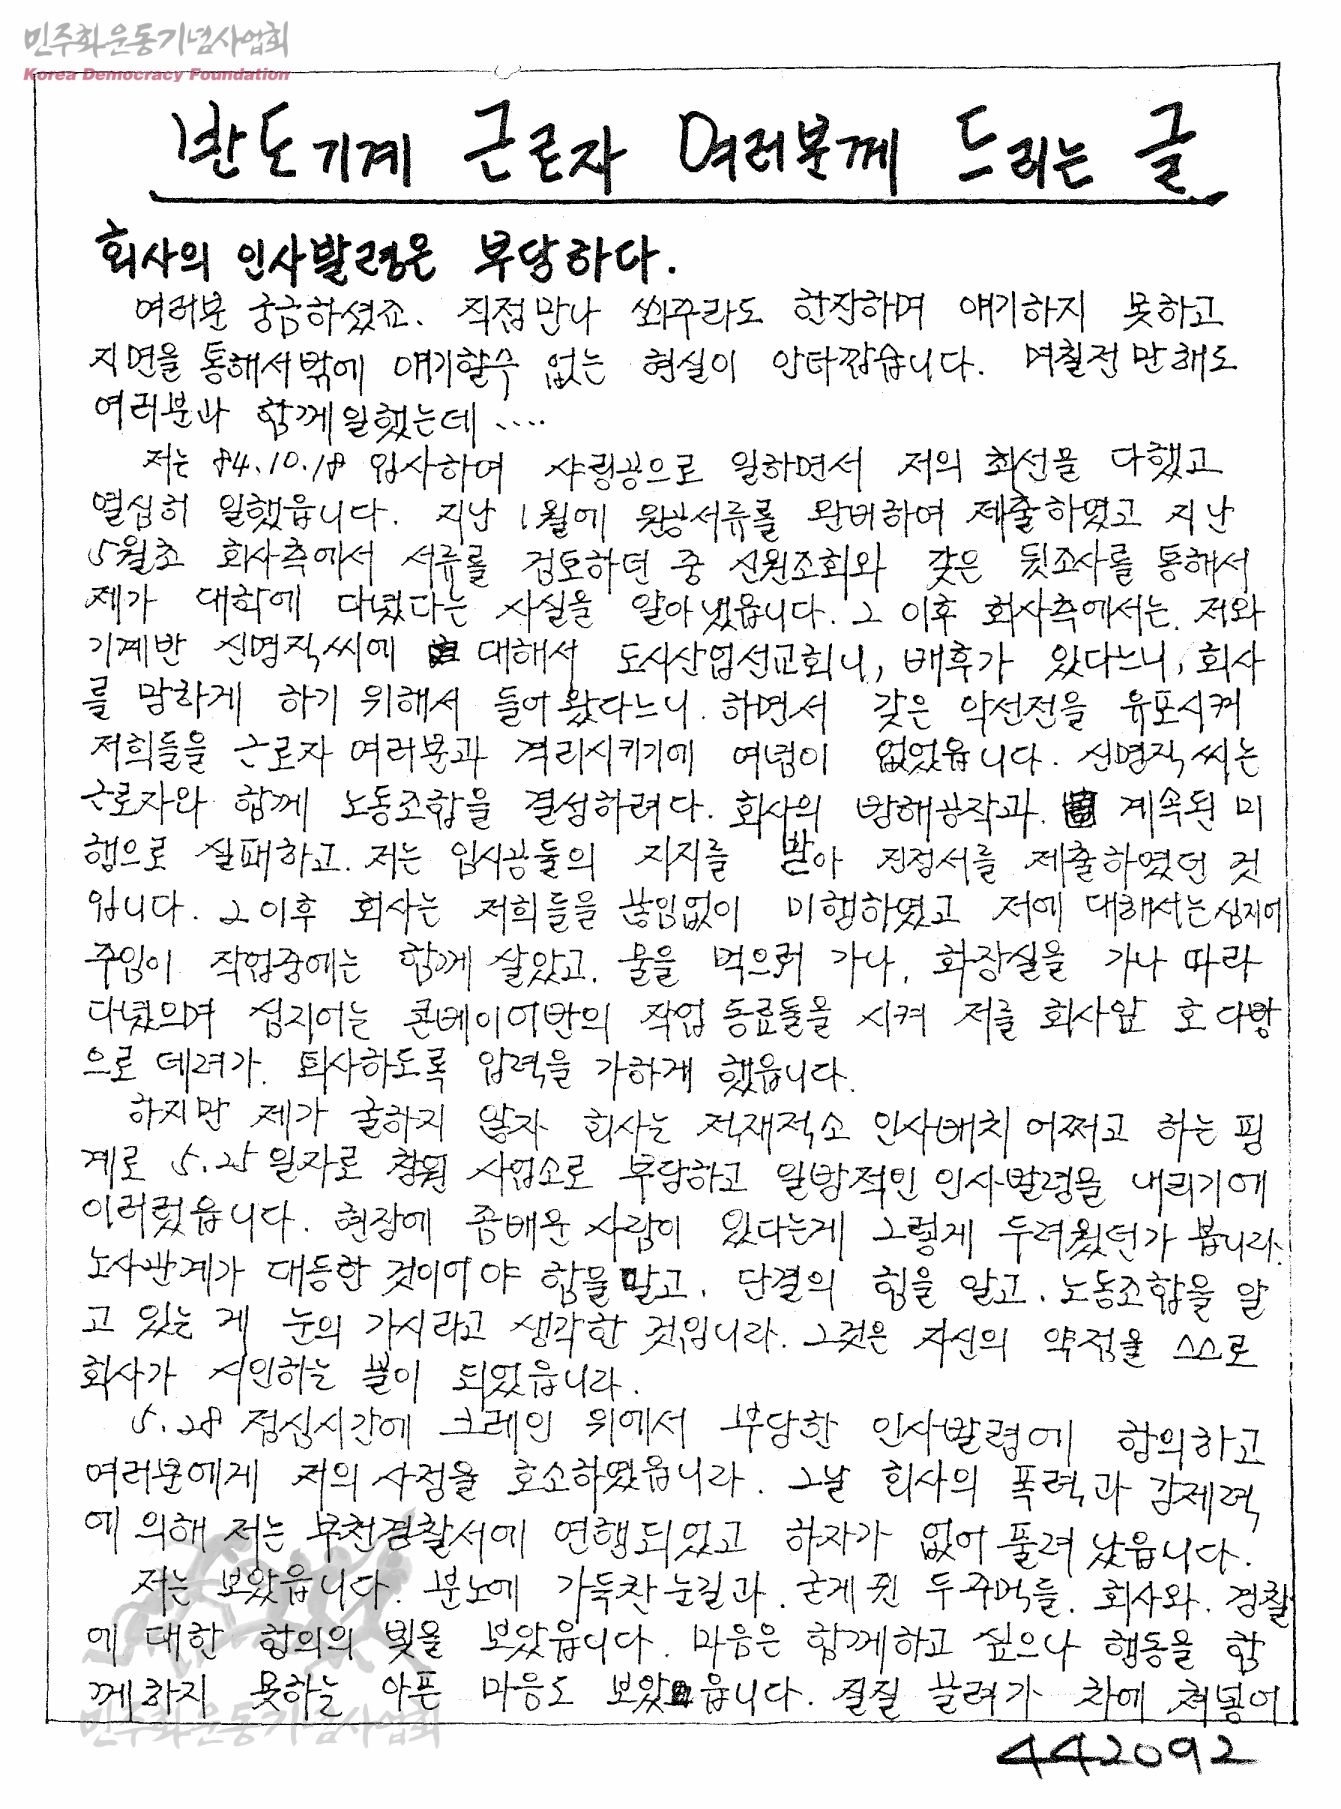 민주화운동기념사업회
Korea Democracy Foundation
반도기계 근로자 여러분께 드리는 글
회사의 인사발령은 부당하다.
여러분 궁금하셨죠. 직접만나 쐬주라도 한잔하며 얘기하지 못하고
지면을 통해서밖에 얘기할수 없는 현실이 안타깝습니다. 며칠전만해도
여러분과 함께일했는데 ....
저는 84.10.18 입사하여 샤링공으로 일하면서 저의 최선을 다했고
열심히 일했읍니다. 지난 1월에 원공서류를 완비하여 제출하였고 지난
5월초 회사측에서 서류를 검토하던 중 신원조회와 갖은 뒷조사를 통해서
제가 대학에 다녔다는 사실을 알아냈읍니다. 그 이후 회사측에서는. 저와
기계반 신명직씨에 대해서 도시산업선교회니, 배후가 있다느니, 회사
를 망하게 하기 위해서 들어왔다느니. 하면서 갖은 악선전을 유포시켜
저희들을 근로자 여러분과 격리시키기에 여념이 없었읍니다. 신명직씨는
근로자와 함께 노동조합을 결성하려다. 회사의 방해공작과. 계속된 미
행으로 실패하고. 저는 임시공들의 지지를 받아 진정서를 제출하였던 것
입니다. 그이후 회사는 저희들을 끊임없이 미행하였고 저에 대해서는심지어
주임이 작업중에는 함께 살았고. 물을 먹으러 가나, 화장실을 가나 따라
다녔으며 심지어는 콘베이어반의 작업 동료들을 시켜 저를 회사앞 호다방
으로 데려가. 퇴사하도록 압력을 가하게 했읍니다.
하지만 제가 굴하지 않자 회사는 적재적소 인사배치 어쩌고 하는 핑
계로 5.25일자로 창원 사업소로 부당하고 일방적인 인사발령을 내리기에
이러렀읍니다. 현장에 좀배운 사람이 있다는게 그렇게 두려웠던가 봅니다.
노사관계가 대등한 것이어야 함을 알고. 단결의 힘을 알고. 노동조합을 알
고 있는 게 눈의 가시라고 생각한 것입니다. 그것은 자신의 약점을 스스로
회사가 시인하는 꼴이 되었읍니다.
5.28 점심시간에 크레인 위에서 부당한 인사발령에 항의하고
여러분에게 저의 사정을 호소하였읍니다. 그날 회사의 폭력과 강제력
에 의해 저는 부천경찰서에 연행되었고 하자가 없어 풀려 났읍니다.
저는 보았읍니다. 분노에 가득찬 눈길과. 굳게 쥔 두주먹들. 회사와. 경찰
에 대한 항의의 빛을 보았읍니다. 마음은 함께하고 싶으나 행동을 함
께하지 못하는 아픈 마음도 보았읍니다. 질질 끌려가 차에 쳐넣어
민주화운동기념사업회
442092